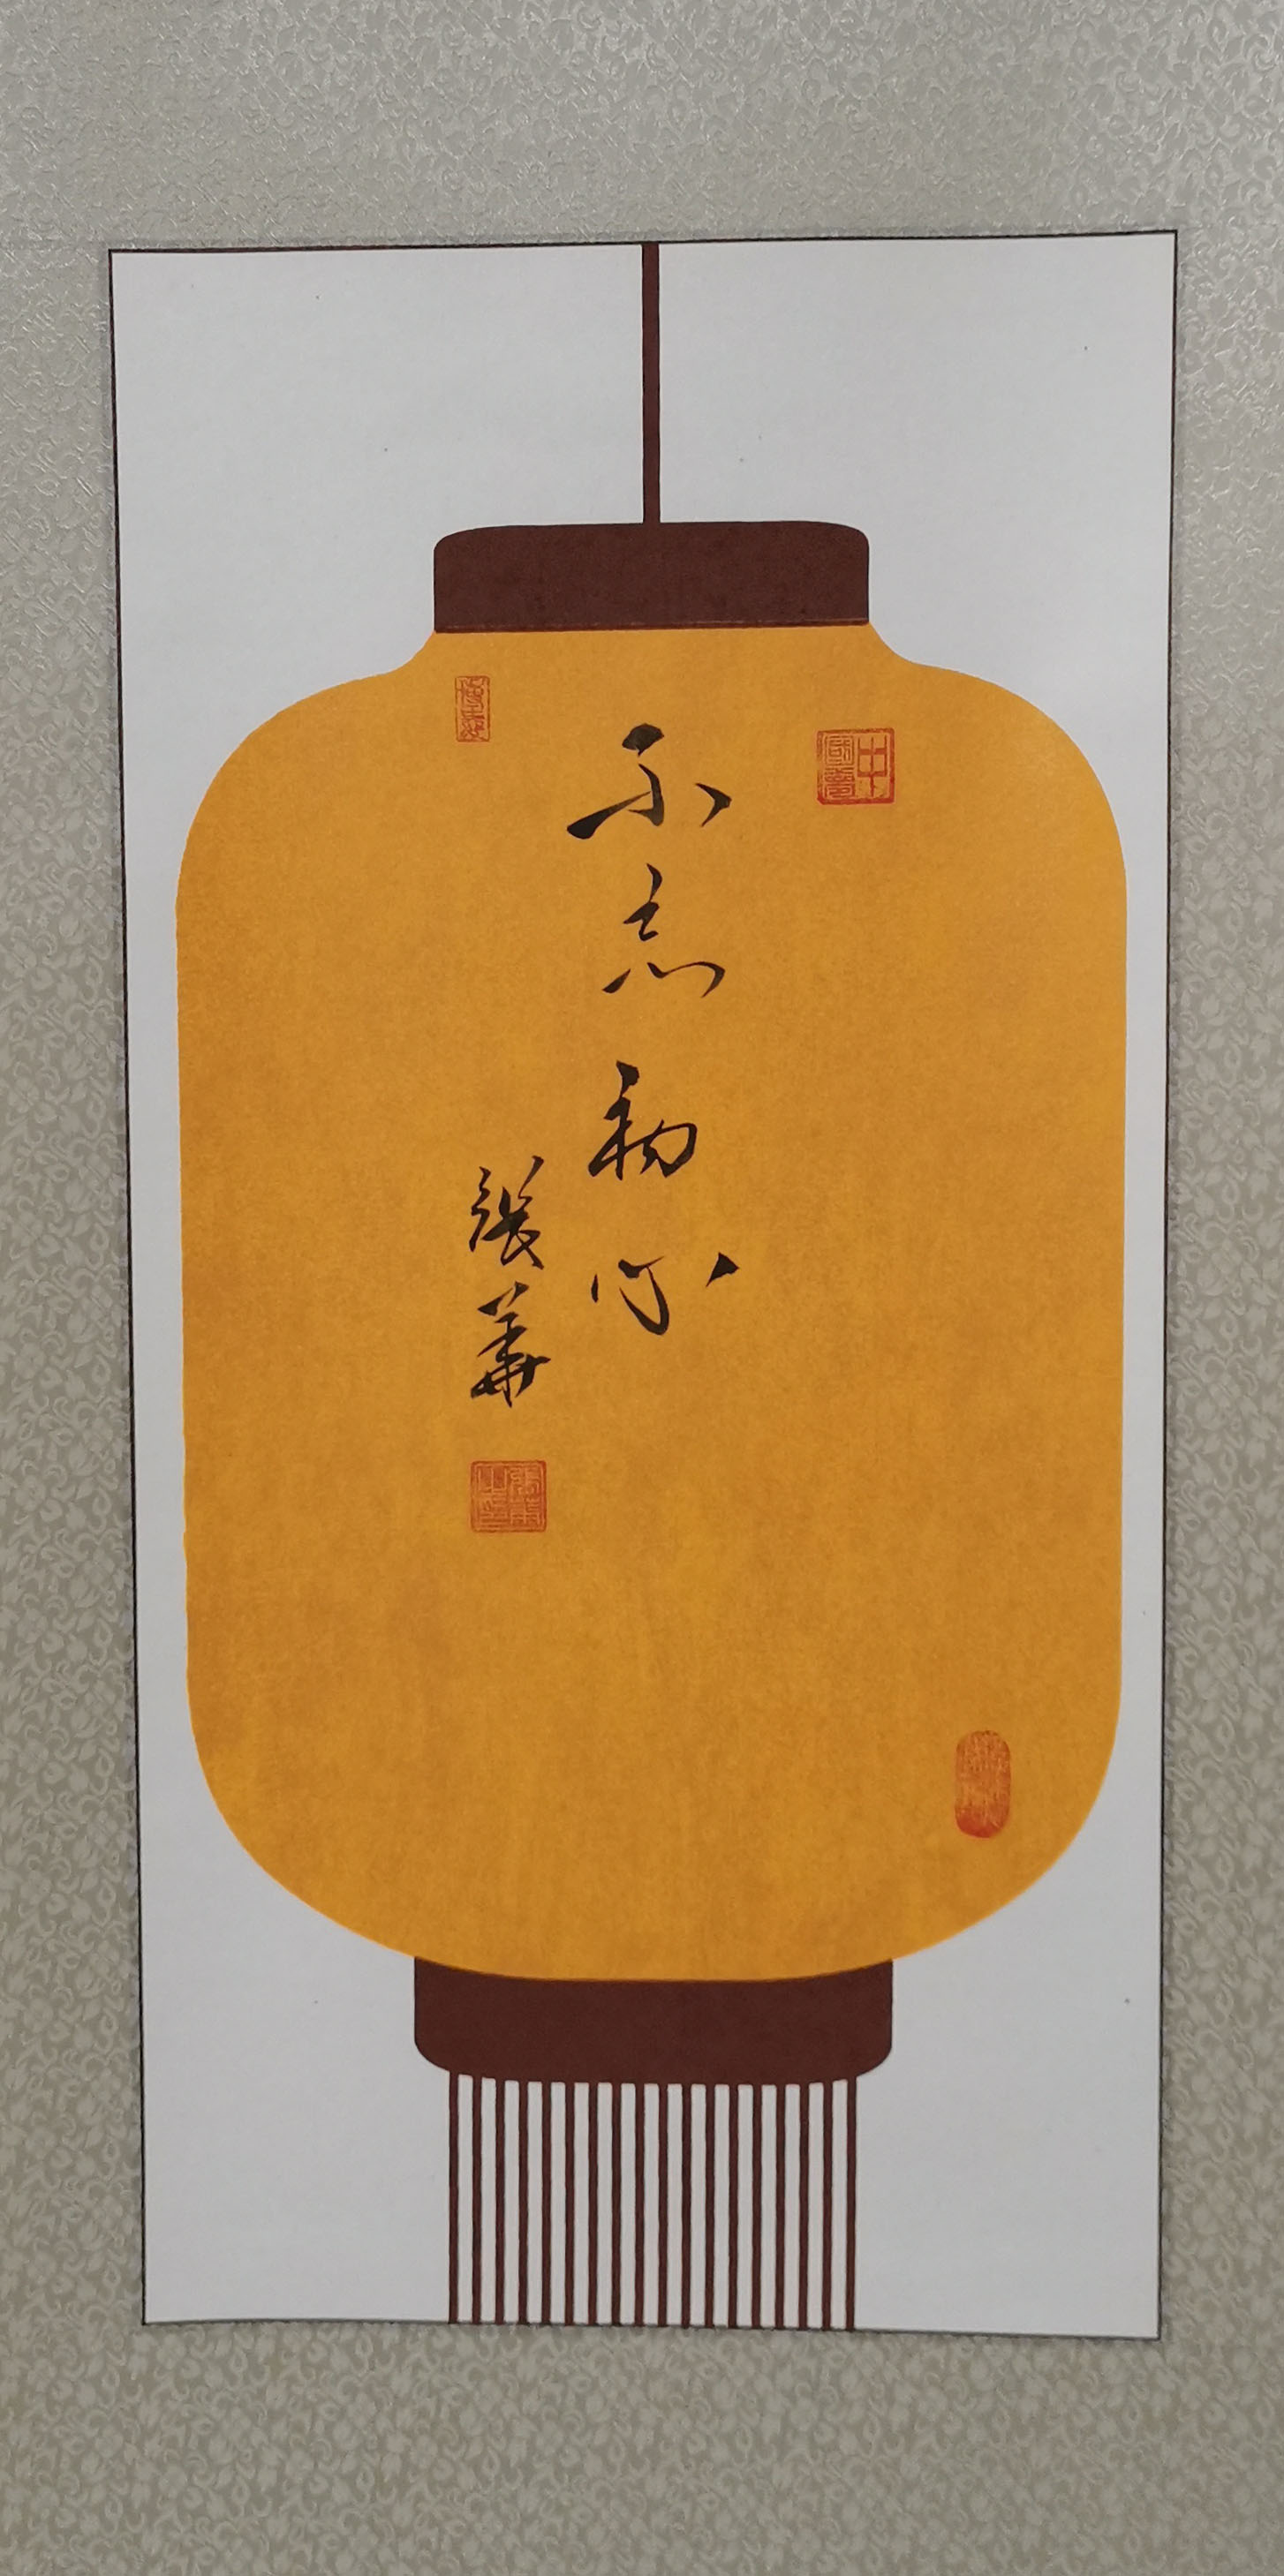 不忘初心
張華
中國夢